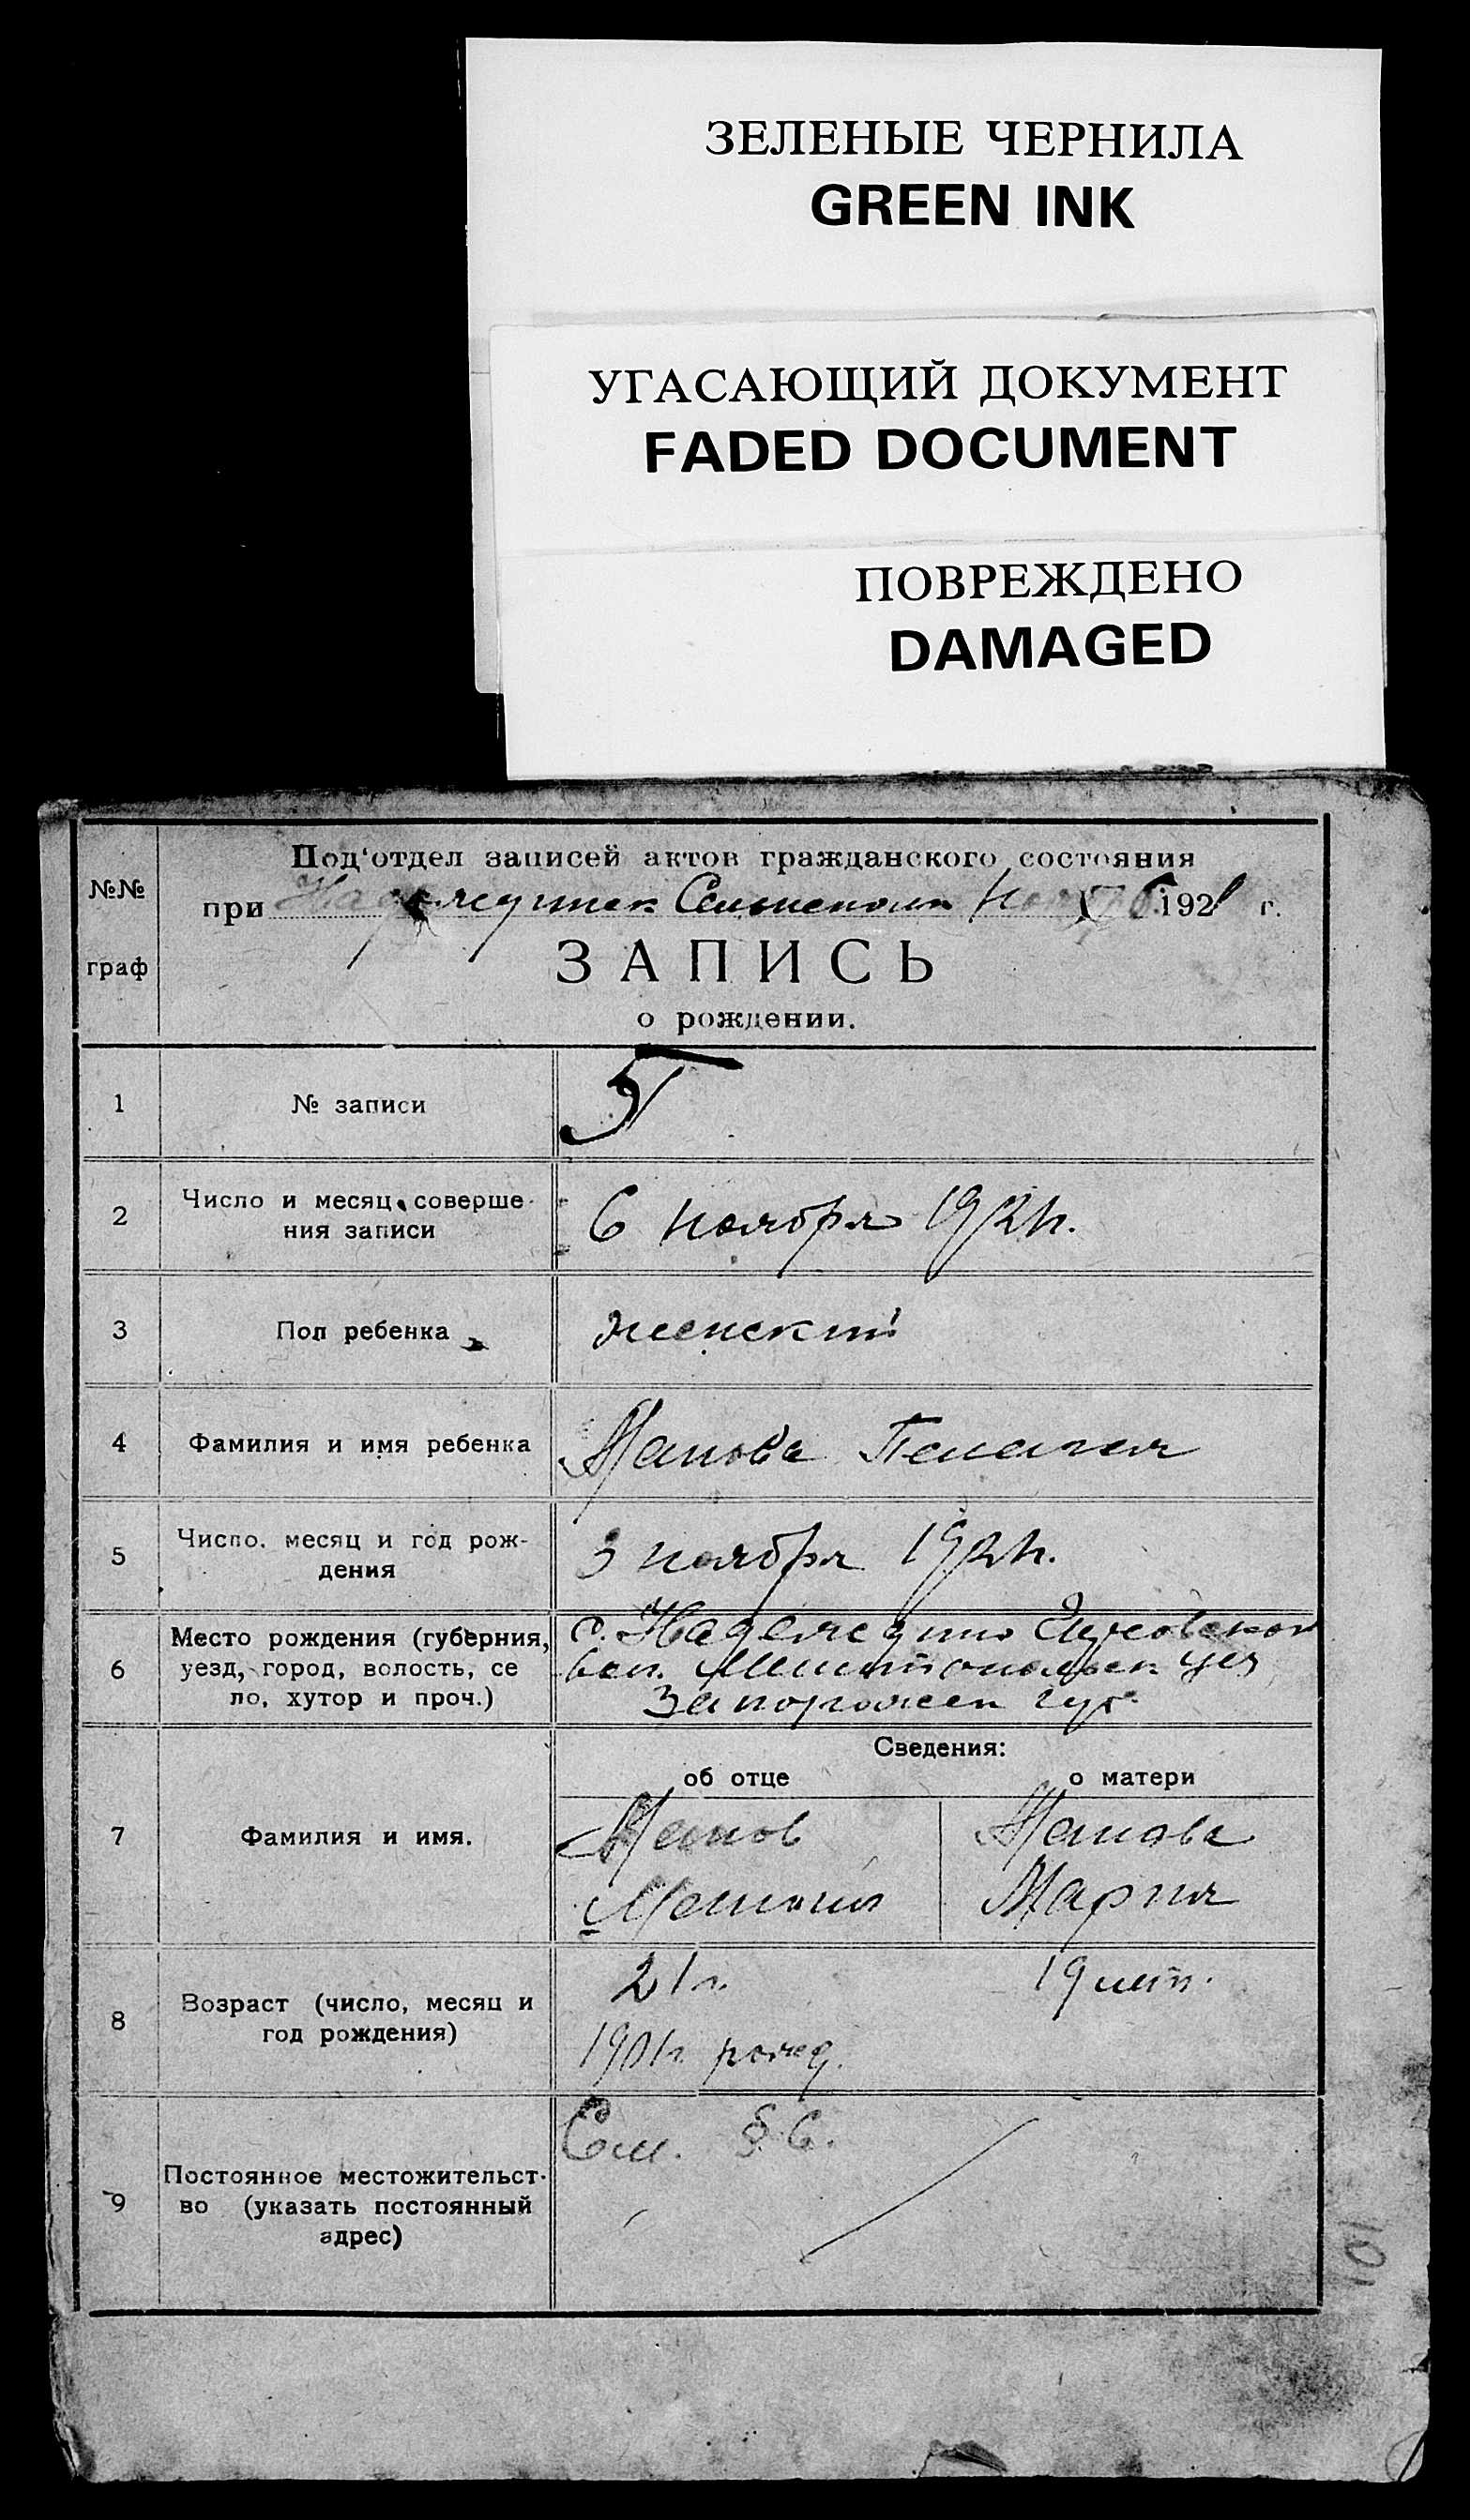 ЗЕЛЕНЫЕ ЧЕРНИЛА
GREEN INK
УГАСАЮЩИЙ ДОКУМЕНТ
FADED DOCUMENT
ПОВРЕЖДЕНО
DAMAGED
№№
граф
Под‘отдел записей актов гражданского состояния
при 192 1 г.
ЗАПИСЬ
о рождении.
1
№ записи
5
2
Число и месяц соверше-
ния записи
6 ноября 1921г.
3
Пол ребенка
женский
4
Фамилия и имя ребенка
Пелагея
5
Число. месяц и год рож-
дения
3 ноября 1921г.
6
Место рождения (губерния,
уезд, город, волость, се
ло, хутор и проч.)
с. Надеждино
вол. Мелитопольск уез
Запорожск губ.
Сведения:
об отце
о матери
7
Фамилия и имя.
Мария
8
Возраст (число, месяц и
год рождения)
21г.
19 лет.
1901г. рожд.
9
Постоянное местожительст-
во (указать постоянный
адрес)
См. § 6.
101